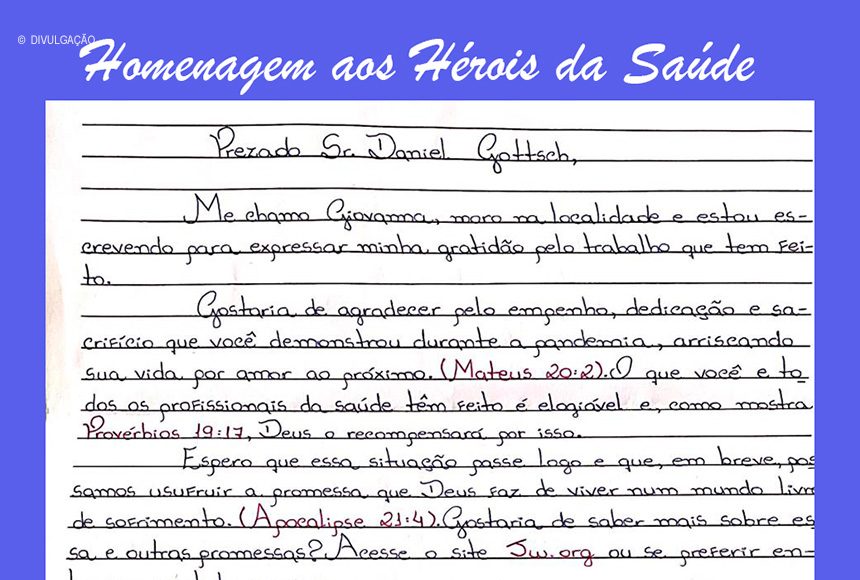 © DIVULGAÇÃO
Homenagem aos Hérois da Saúde
Prezado Sr. Daniel Gottsch,
Me chamo Giovanna, moro na localidade e estou es-
crevendo para expressar minha gratidão pelo trabalho que tem fei-
to.
Gostaria de agradecer pelo empenho, dedicação e sa-
crifício que você demonstrou durante a pandemia, arriscando
sua vida por amor ao próximo. (Mateus 20:2). O que você e to
dos os profissionais da saúde têm feito é elogiável e, como mostra
Provérbios 19:17, Deus o recompensará por isso.
Espero que essa situação passe logo e que, em breve, pos
samos usufruir a promessa que Deus faz de viver num mundo livre
de sofrimento. (Apocalipse 21:4). Gostaria de saber mais sobre es
sa e outras promessas? Acesse o site Jw.org ou se preferir en-